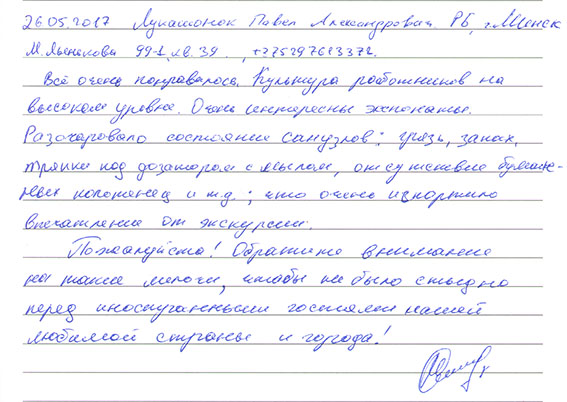 26.05.2017 Лукашонок Павел Александрович. РБ, г. Минск
М. Лынькова 99-1, кв. 39, +375297613372.
Всё очень понравилось. Культура работников на
высоком уровне. Очень интересны экспонаты.
Разочаровало состояние санузлов: грязь, запах,
тряпки под дозатором с мылом, отсутствие бумаж-
ных полотенец и т.д.; что очень испортило
впечатление от экскурсии.
Пожалуйста! Обратите внимание
на такие мелочи, чтобы не было стыдно
перед иностранными гостями нашей
любимой страны и города!